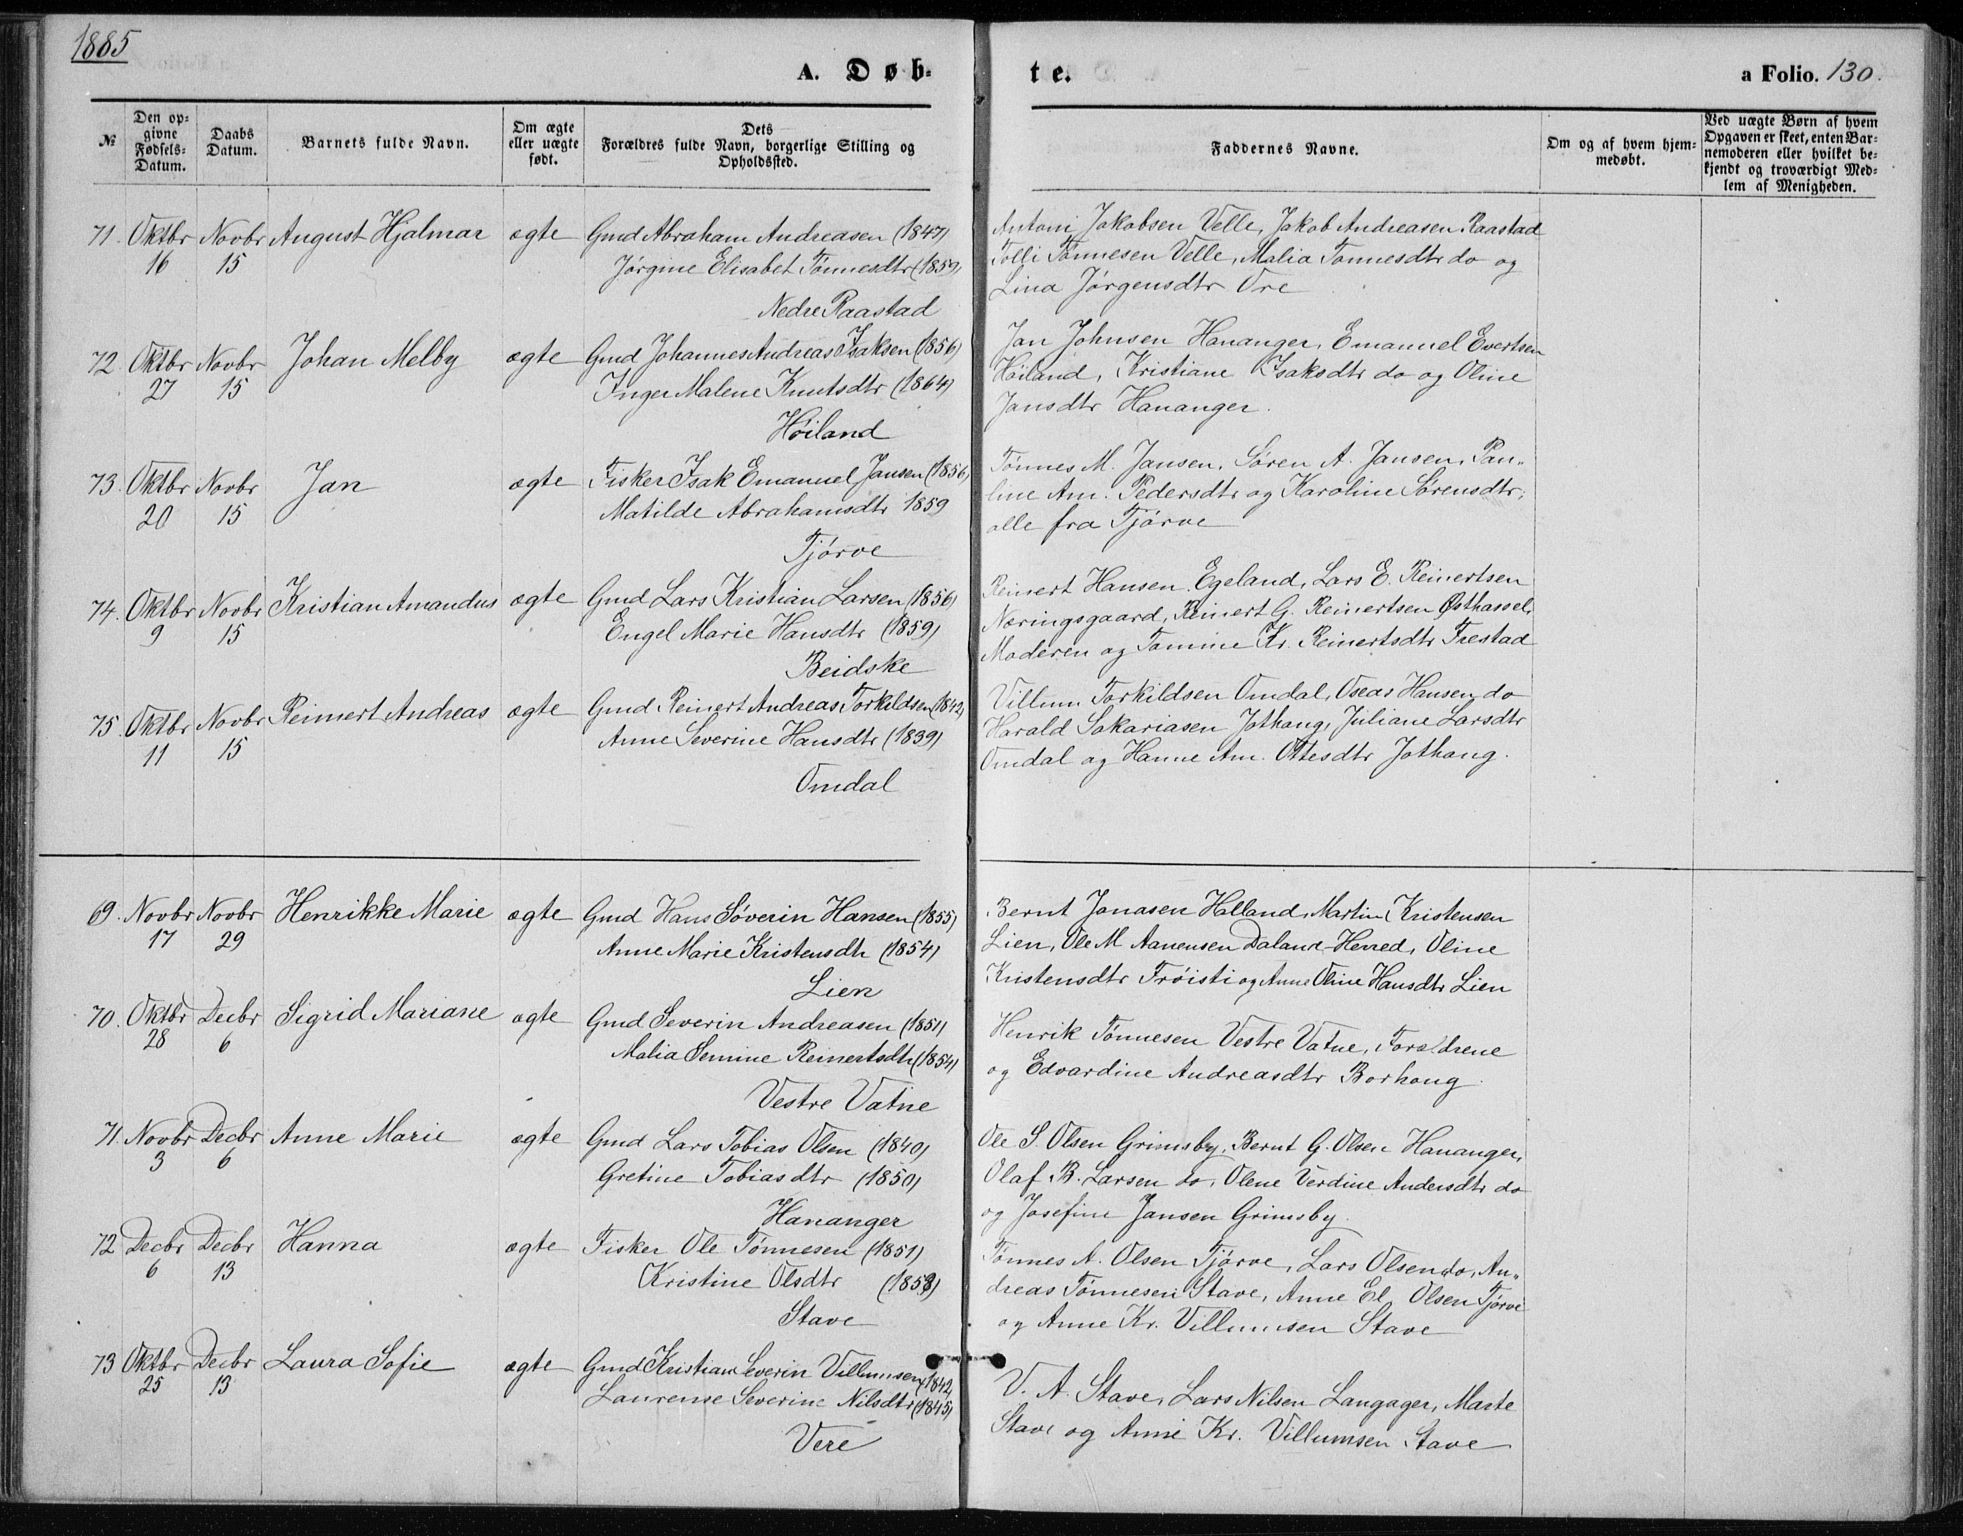 1885
A. Døb-
te.
a Folio. 130.
№
Den op-
givne
Fødsels-
Datum.
Daabs
Datum.
Barnets fulde Navn.
Om ægte
eller uægte
født.
Dets
Forældres fulde Navn, borgerlige Stilling og
Opholdssted.
Faddernes Navne.
Om og af hvem hjem-
medøbt.
Ved uægte Børn af hvem
Opgaven er skeet, enten Bar-
nemoderen eller hvilket be-
kjendt og troværdigt Med-
lem af Menigheden.
71. Oktbr Novbr August Hjalmar ægte Gmd Abraham Andreasen (1847)
16 15 Jørgine Elisabet Tønnesdtr (1859)
Nedre Raastad
Antoni Jakobsen Velle, Jakob Andreasen Raastad
Tolli Tønnesen Velle, Malia Tønnesdtr do og
Lina Jørgensdtr Ore
72. Oktbr Novbr Johan Melby ægte Gmd Johannes Andreas Isaksen (1856)
27 15 Inger Malene Knutsdtr (1864)
Høiland
Jan Johnsen Hananger, Emanuel Evertsen
Høiland, Kristiane Isaksdtr do og Oline
Jansdtr Hananger.
73. Oktbr Novbr Jan ægte Fisker Isak Emanuel Jansen (1856)
20 15 Matilde Abrahamsdtr 1859
Tjørve
Tønnes M. Jansen, Søren A. Jansen, Pau-
line Am. Pedersdtr og Karoline Sørensdtr,
alle fra Tjørve
74. Oktbr Novbr Kristian Amandus ægte Gmd Lars Kristian Larsen (1856)
9 15 Engel Marie Hansdtr (1859)
Beidske
Reinert Hansen Egeland, Lars E. Reinertsen
Næringsgaard, Reinert G. Reinertsen Østhassel,
Moderen og Tomine Kr. Reinertsdtr Frestad
75. Oktbr Novbr Reinert Andreas ægte Gmd Reinert Andreas Torkildsen (1842)
11 15 Anne Severine Hansdtr (1839)
Omdal
Villum Torkildsen Omdal, Oscar Hansen do
Harald Sakariasen Jothaug, Juliane Larsdtr
Omdal og Hanne Am. Ottesdtr Jothaug.
69. Novbr Novbr Henrikke Marie ægte Gmd Hans Søverin Hansen (1855)
17 29 Anne Marie Kristensdtr (1854)
Lien
Bernt Jonasen Halland, Martin Kristensen
Lien, Ole M Aanensen Daland-Herred, Oline
Kristensdtr Trøisti og Anne Oline Hansdtr Lien
70. Oktbr Decbr Sigrid Mariane ægte Gmd Severin Andreasen (1851)
28 6 Malia Semine Reinertsdtr (1854)
Vestre Vatne
Henrik Tønnesen Vestre Vatne, Forældrene
og Edvardine Andreasdtr Borhaug.
71. Novbr Decbr Anne Marie ægte Gmd Lars Tobias Olsen (1840)
3 6 Gretine Tobiasdtr (1850)
Hananger
Ole S. Olsen Grimsby, Bernt G. Olsen Hananger,
Olaf B. Larsen do, Olene Verdine Andersdtr do
og Josefine Jansen Grimsby.
72 Decbr Decbr Hanna ægte Fisker Ole Tønnesen (1851)
6 13 Kristine Olsdtr
Stave
Tønnes A. Olsen Tjørve, Lars Olsen do, An-
dreas Tønnesen Stave, Anne El. Olsen Tjørve
og Anne Kr. Villumsen Stave
73 Oktbr Decbr Laura Sofie ægte Gmd Kristian Severin Villumsen (1842)
25 13 Laurense Severine Nilsdtr (1845)
Vere
V. A. Stave, Lars Nilsen Langager, Marte
Stave og Anne Kr. Villumsen Stave